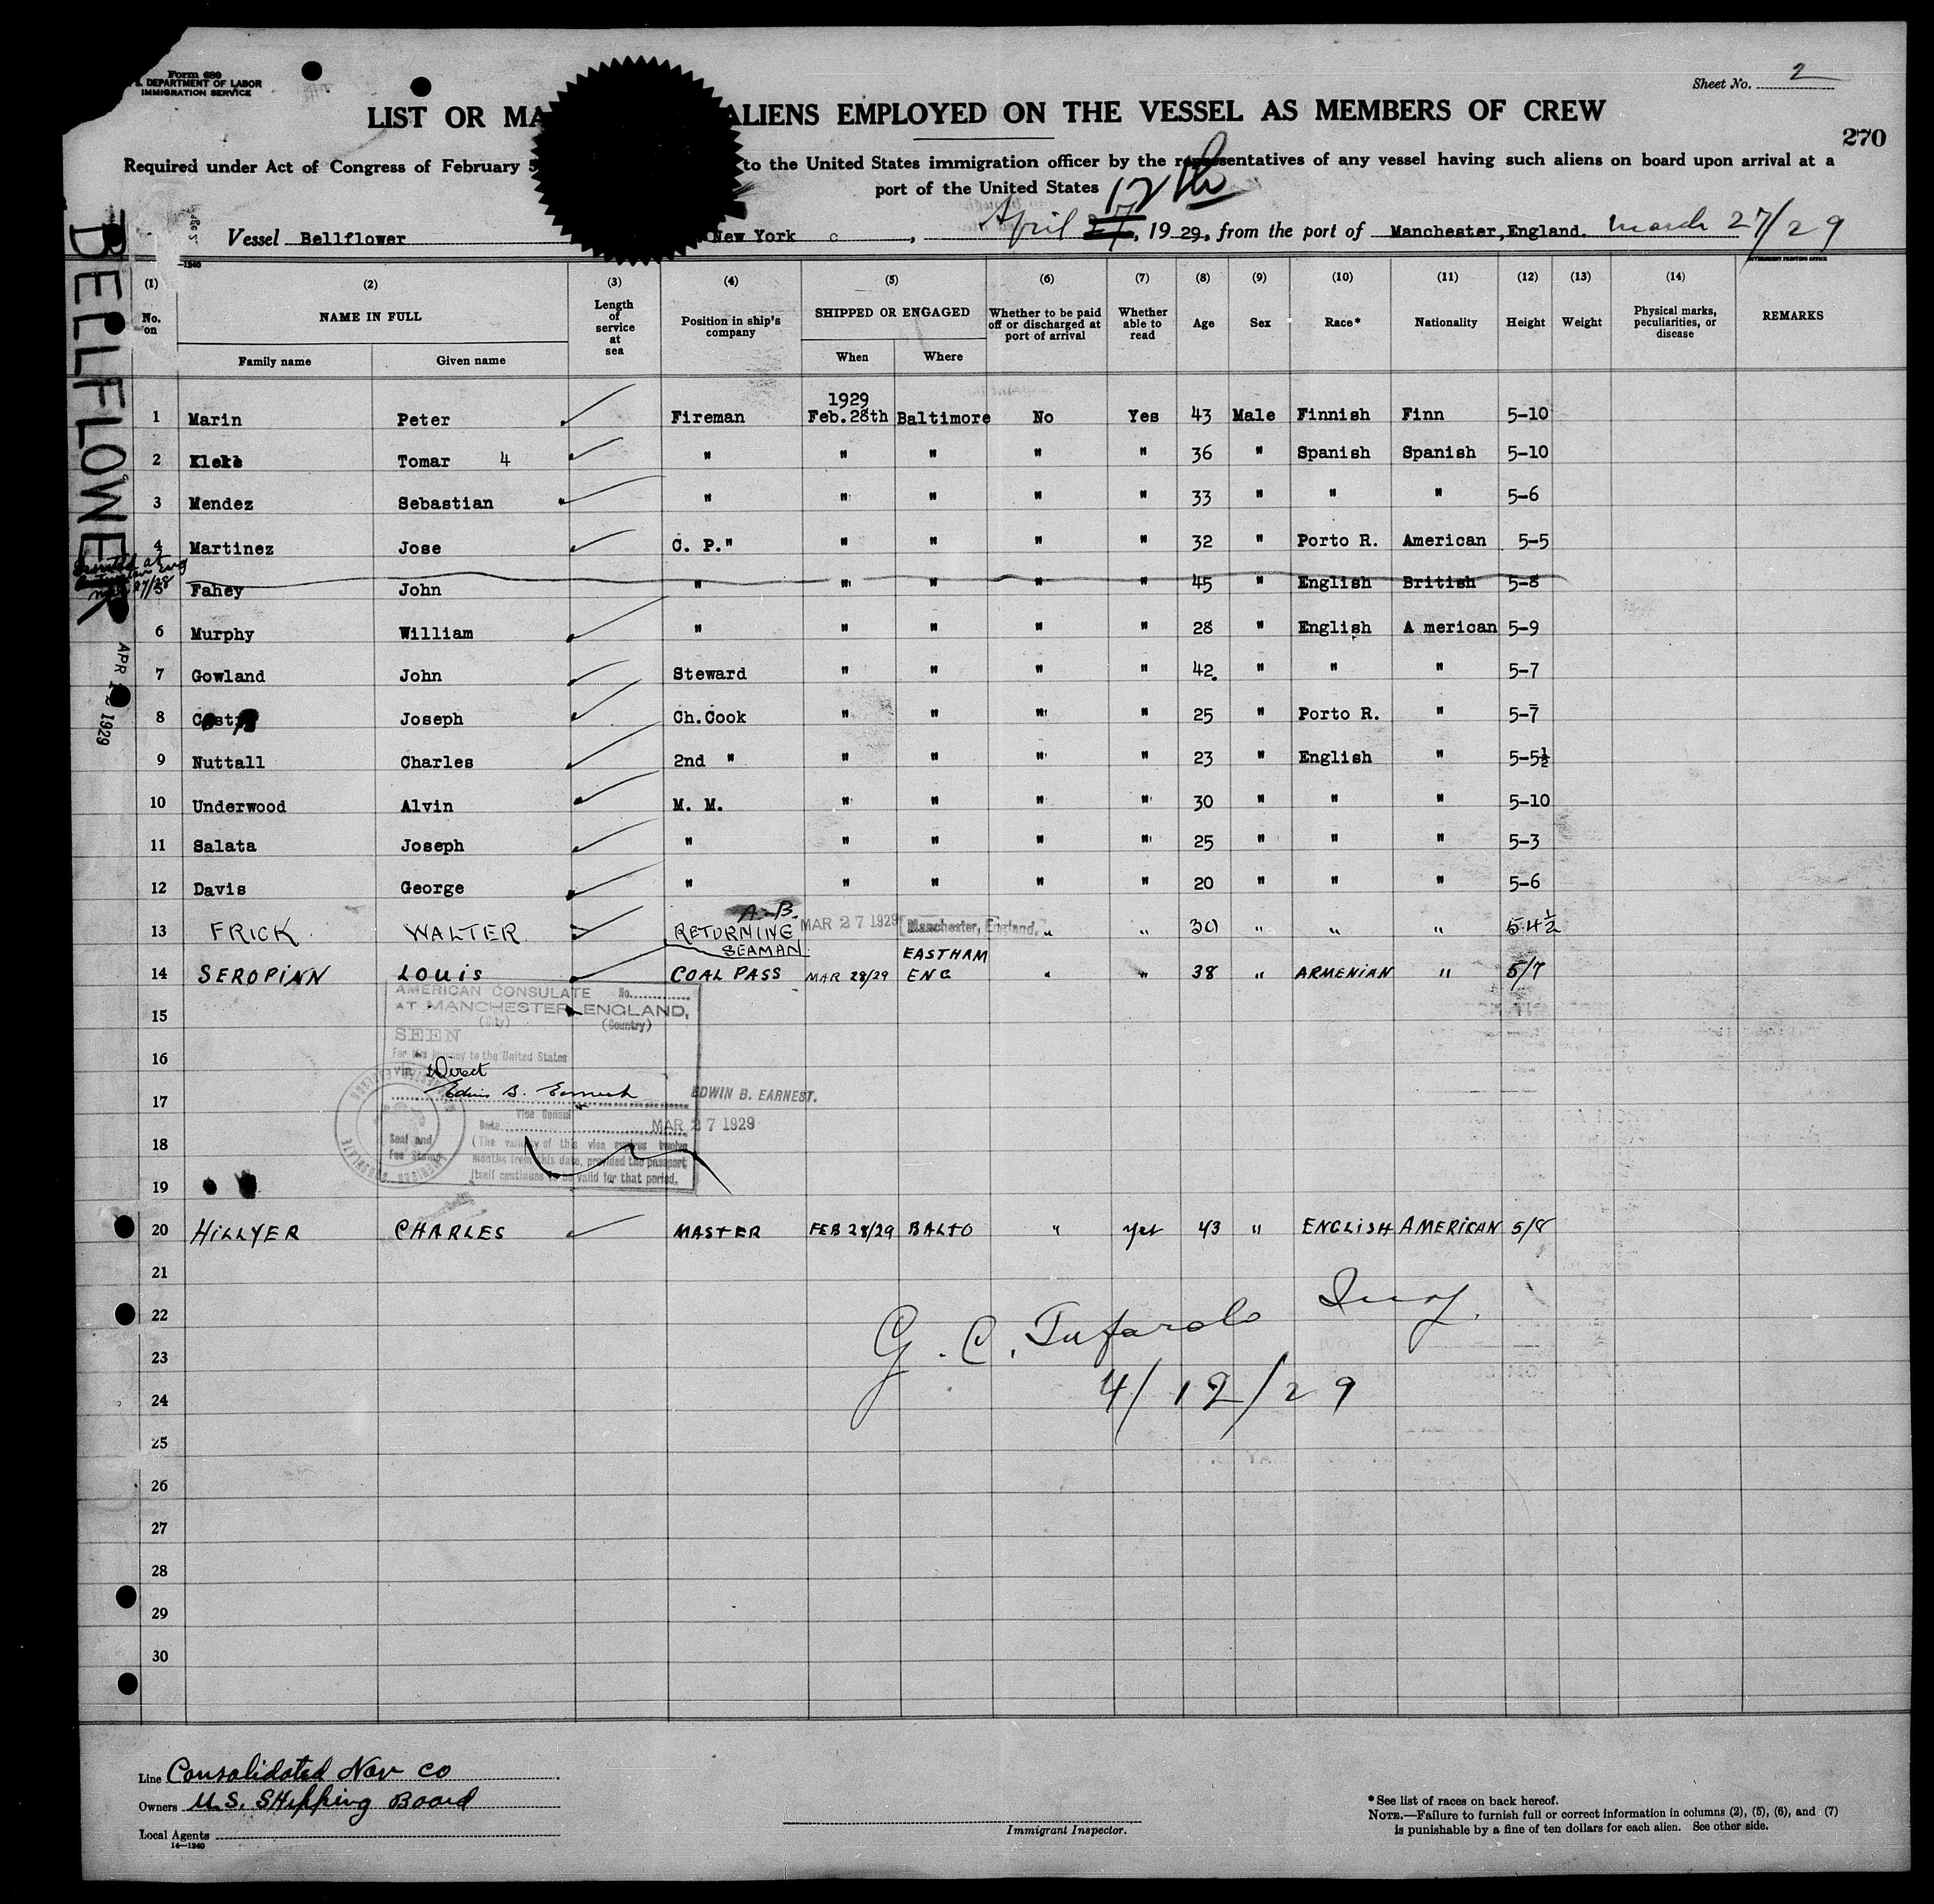 Form 680
DEPARTMENT OF LABOR
IMMIGRATION SERVICE
Sheet No. 2
LIST OR MA ALIENS EMPLOYED ON THE VESSEL AS MEMBERS OF CREW
270
Required under Act of Congress of February 5 to the United States immigration officer by the representatives of any vessel having such aliens on board upon arrival at a
port of the United States
12th
Vessel Bellflower New York April 27, 1929, from the port of Manchester, England. March 27/29
BELLFLOWER
(1) (2) (3) (4) (5) (6) (7) (8) (9) (10) (11) (12) (13) (14)
No. on NAME IN FULL Length of service at sea Position in ship's company SHIPPED OR ENGAGED Whether to be paid off or discharged at port of arrival Whether able to read Age Sex Race* Nationality Height Weight Physical marks, peculiarities, or disease REMARKS
Family name Given name When Where
1929
1 Marin Peter Fireman Feb. 28th Baltimore No Yes 43 Male Finnish Finn 5-10
2 Tomar 4 " " " " " 36 " Spanish Spanish 5-10
3 Mendez Sebastian " " " " " 33 " " " 5-6
4 Martinez Jose C. P." " " " " 32 " Porto R. American 5-5
5 Fahey John " " " " " 45 " English British 5-8
6 Murphy William " " " " " 28 " English A merican 5-9
7 Gowland John Steward " " " " 42 " " " 5-7
8 Joseph Ch. Cook " " " " 25 " Porto R. " 5-7
9 Nuttall Charles 2nd " " " " " 23 " English " 5-5½
10 Underwood Alvin M. M. " " " " 30 " " " 5-10
11 Salata Joseph " " " " " 25 " " " 5-3
12 Davis George " " " " " 20 " " " 5-6
A-B.
13 FRICK WALTER RETURNING SEAMAN MAR 27 1929 Manchester, England. " " 30 " " " 5 4½
14 SEROPIAN LOUIS COAL PASS MAR 28/29 EASTHAM ENG " " 38 " ARMENIAN " 5/7
APR 12 1929
AMERICAN CONSULATE No.
AT MANCHESTER, ENGLAND,
(City) (Country)
15
SEEN
For his journey to the United States
16
via Direct
Edwin B. Earnest EDWIN B. EARNEST.
17
Vice Consul
Date MAR 27 1929
18
Seal and Fee Stamp
(The validity of this visa expires twelve
months from this date, provided the passport
itself continues to be valid for that period.
19
20 HILLYER CHARLES MASTER FEB 28/29 BALTO " yes 43 " ENGLISH AMERICAN 5/8
21
22
23
G. C. Tufarolo Insp.
24
4/12/29
25
26
27
28
29
30
Line Consolidated Nav Co
Owners U.S. Shipping Board
Local Agents
14-1240
Immigrant Inspector.
*See list of races on back hereof.
NOTE.—Failure to furnish full or correct information in columns (2), (5), (6), and (7)
is punishable by a fine of ten dollars for each alien. See other side.